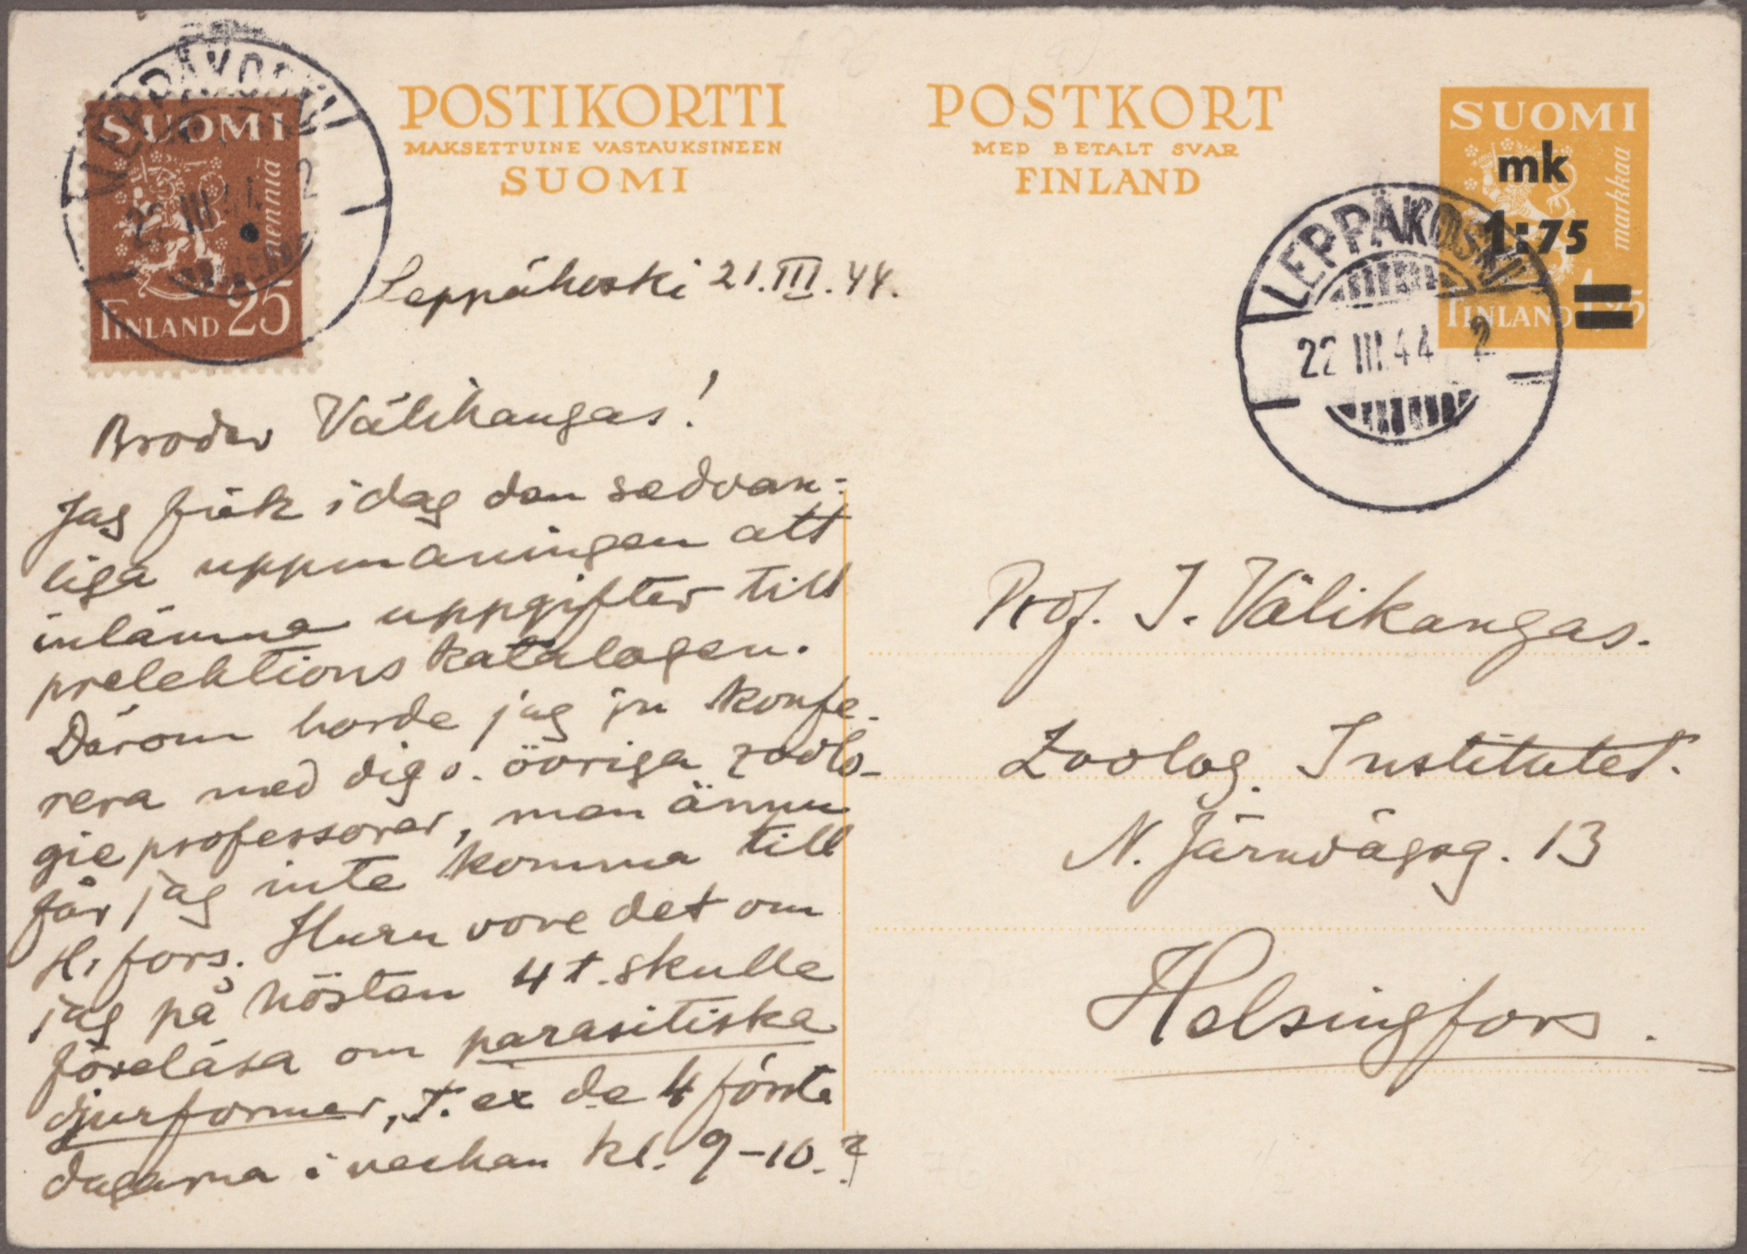 POSTIKORTTI
MAKSETTUINE VASTAUKSINEEN
SUOMI
POSTKORT
MED BETALT SVAR
FINLAND
SUOMI
penniä
FINLAND 25
LEPPÄKOSKI
22 III 44 2
SUOMI
markkaa
mk
1:75
FINLAND 1 25
LEPPÄKOSKI
22 III 44 2
Leppäkoski 21.III.44.
Broder Välikangas!
Jag fick idag den sedvan-
liga uppmaningen att
inlämna uppgifter till
prelektionskatalogen.
Därom borde jag ju konfe-
rera med dig o. övriga zoolo-
gieprofessorer, men ännu
får jag inte komma till
H:fors. Huru vore det om
jag på hösten 4 t. skulle
föreläsa om parasitiska
djurformer, t. ex de 4 första
dagarna i veckan kl. 9-10.?
Prof. I. Välikangas.
Zoolog. Institutet.
N. Järnvägsg. 13
Helsingfors.